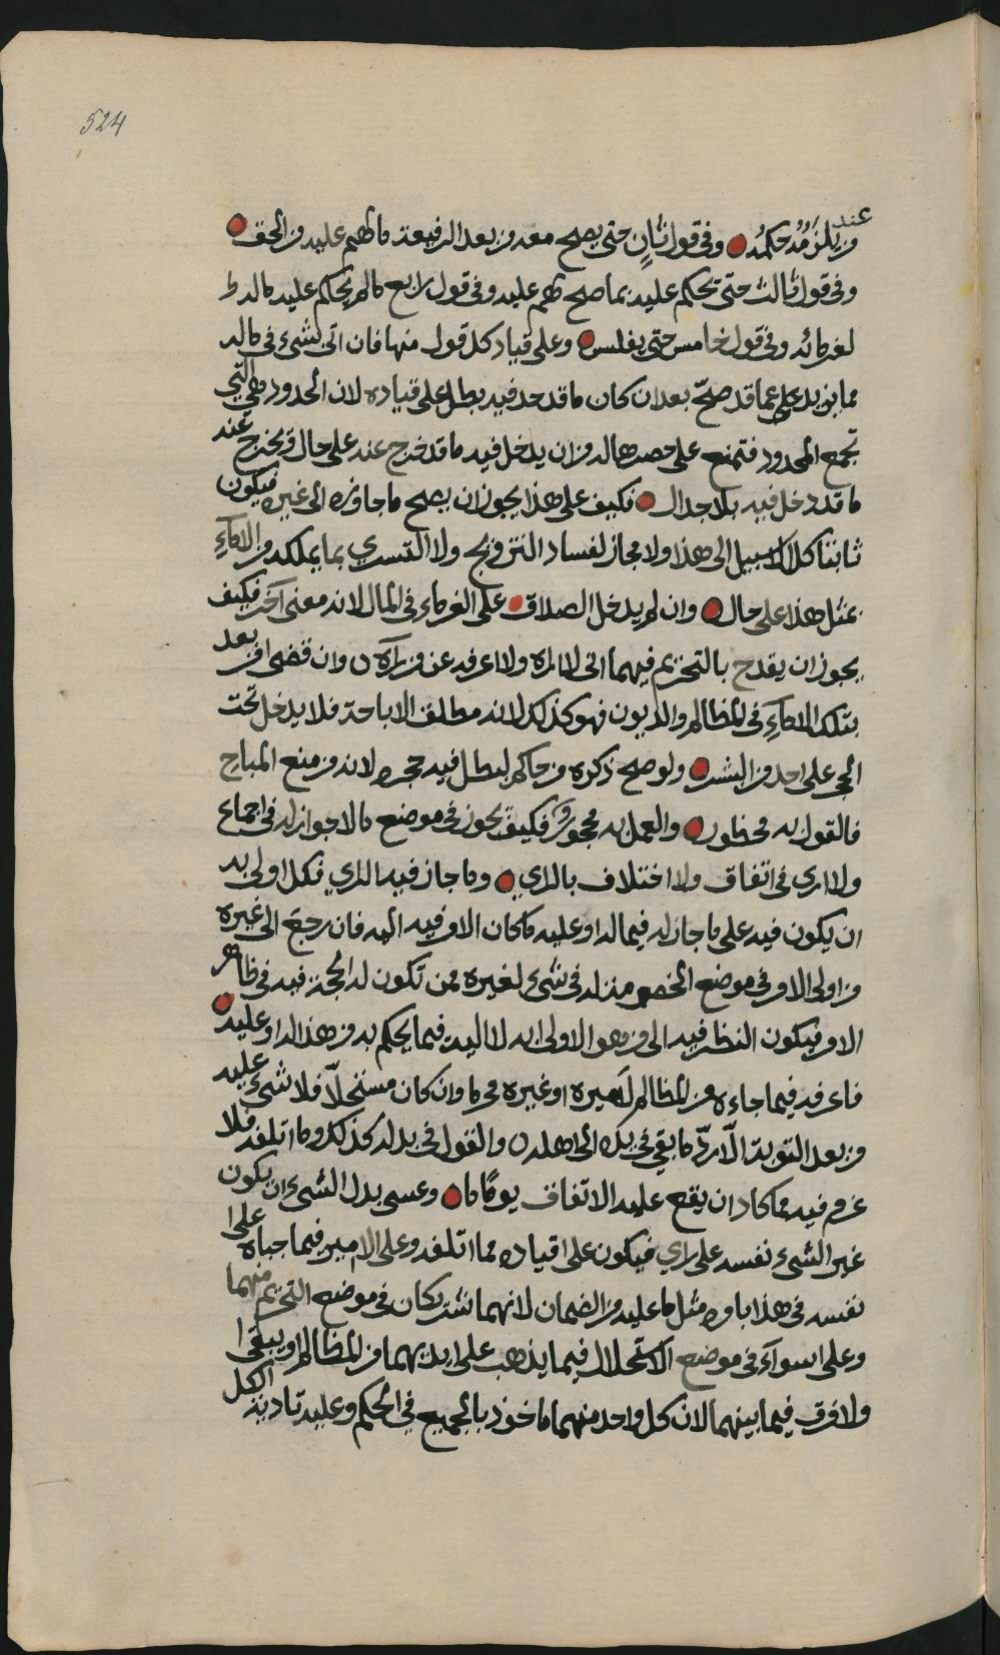 524
عند
من يلزمه حكمه وفي قول ثانٍ حتى يصح معه من بعد الرفيعة ما لهم عليه من الحق
وفي قول ثالث حتى يحكم عليه بما صح لهم عليه وفي قول رابع ما لم يحاكم عليه ماله
لغرمائه وفي قول خامس حتى يفلسه وعلى قياد كل قول منها فان اتى لشيء في ماله
مما يزيد على عما قد صحّ بعد ان كان ما قد حد فيه بطل على قياده لان الحدود هي التي
تجمع المحدود فتمنع على حصرها له من ان يدخل فيه ما قد خرج عنه على حال او يخرج عنه
ما قد دخل فيه بلا جدال فكيف على هذا يجوز ان يصح ما جاوزه الى غيره فيكون
ثابتا كلا لا سبيل الى هذا ولا مجاز لفساد التزويج ولا التسري بما يملكه من الاماءِ
بمثل هذا على حال وان لم يدخل الصداق على الغرماء في المال لانه معنى آخر فكيف
يجوز ان يقدح بالتحريم فيهما اني لا اراه ولا اعرفه عن من رآه وان قضى من بعد
بتلك الاماءِ في المظالم والديون فهو كذلك لانه مطلق الاباحة فلا يدخل تحت
الحجر على احد من البشر ولو صح ذكره من حاكم لبطل فيه حجره لانه من منع المباح
فالقول به محظور والعمل به محجور فكيف يجوز في موضع ما لا جواز له في اجماع
ولا ارى في اتفاق ولا اختلاف بالراي وما جاز فيه الراي فكل اولى به
ان يكون فيه على ما جاز له فيما له او عليه ما كان الامر فيه اليه فان رجع الى غيره
من اولى الامر في موضع الخصم منه له في شيء لغيره ممن تكون له الحجة فيه في ظاهر
الامر فيكون النظر فيه الى من هو الاولى به لا اليه فيما يحكم به من هذا له او عليه
فاعرفه فيما جاءه من المظالم لَميره او غيره محرما وان كان مستحلّا فلا شيء عليه
من بعد التوبة الّا ردّ ما بقي في يده الى اهله والقول في بدله كذلك وما اتلفه فلا
غرم فيه مما كاد ان يقع عليه الاتفاق يوما ما وعسى بدل الشيء ان يكون
غير الشيء نفسه على راي فيكون على قياده مما اتلفه وعلى الامير فيما جباه على
نفسه في هذا بامره مثل ما عليه من الضمان لانهما شريكان في موضع التحريم منهما
وعلى سواءٍ في موضع الاستحلال فيما يذهب على ايديهما من المظالم او يبقى
ولا فرق فيما بينهما لان كل واحد منهما ماخوذ بالجميع في الحكم وعليه تادية الكل